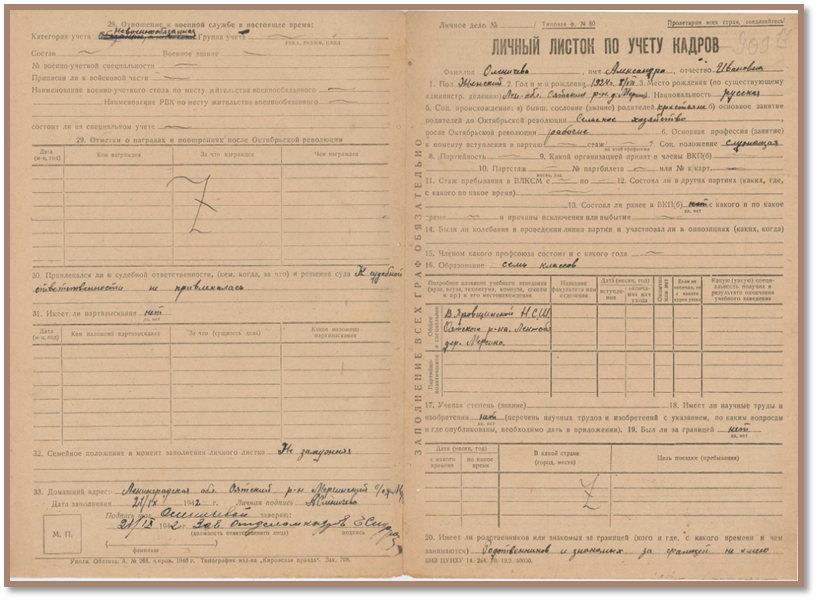 28. Отношение к военной службе в настоящее время:
Невоеннообязанная
Категория учета Группа учета
Состав Военное звание
№ военно-учетной специальности
Приписан ли к войсковой части
Наименование военно-учетного стола по месту жительства военнообязанного
Наименование РВК по месту жительства военнообязанного
состоит ли на специальном учете
29. Отметки о наградах и поощрениях после Октябрьской революции
Дата (м-ц, год) Кем награжден За что награжден Чем награжден
Z
30. Привлекался ли к судебной ответственности, (кем, когда, за что) и решение суда К судебной
ответственности не привлекалась
31. Имеет ли партвзыскания нет
да, нет
Дата (м-ц, год) Кем наложено партвзыскание За что (сущность дела) Какое наложено партвзыскание
32. Семейное положение в момент заполнения личного листка Не замужняя
33. Домашний адрес: Ленинградская обл. Оятский р-он
Дата заполнения 1942 г. Личная подпись
Подпись Оленичевой заверяю:
1942 г. Зав. Отделом кадров
(должность ответственного лица) подпись
М. П.
(фамилия)
Личное дело № Типовая ф. № 60 Пролетарии всех стран, соединяйтесь!
ЛИЧНЫЙ ЛИСТОК ПО УЧЕТУ КАДРОВ
Фамилия Оленичева, имя Александра, отчество Ивановна
1. Пол Женский 2. Год и м-ц рождения 1924 г. 3. Место рождения (по существующему
администр. делению) Лен. обл. Оятский р-н Национальность русская
5. Соц. происхождение: а) бывш. сословие (звание) родителей крестьяне б) основное занятие
родителей до Октябрьской революции Сельское хозяйство
после Октябрьской революции рабочие 6. Основная профессия (занятие)
к моменту вступления в партию стаж 7. Соц. положение служащая
8. Партийность 9. Какой организацией принят в члены ВКП(б)
10. Партстаж № партбилета или № к/карт.
11. Стаж пребывания в ВЛКСМ с по 12. Состоял ли в других партиях (каких, где,
с какого по какое время)
13. Состоял ли ранее в ВКП(б) нет с какого и по какое
да, нет
время и причины исключения или выбытия
14. Были ли колебания в проведении линии партии и участвовал ли в оппозициях (каких, когда)
15. Членом какого профсоюза состоит и с какого года
16. Образование семь классов
ЗАПОЛНЕНИЕ ВСЕХ ГРАФ ОБЯЗАТЕЛЬНО
Название факультета или отделения Дата (месяц, год)
Общее и специальное
В Яровщинской Н.С.Ш.
Оятского р-на. Ленобл.
дер.
Партийно-политическое
17. Ученая степень (звание) 18. Имеет ли научные труды и
изобретения нет (перечень научных трудов и изобретений с указанием, по каким вопросам
и где опубликованы, необходимо дать в приложении). 19. Был ли за границей нет
да, нет
Дата (месяц, год) В какой стране (город, место) Цель поездки (пребывания)
с какого времени по какое время
Z
20. Имеет ли родственников или знакомых за границей (кого и где, с какого времени и чем
занимаются) Родственников и знакомых за границей не имею